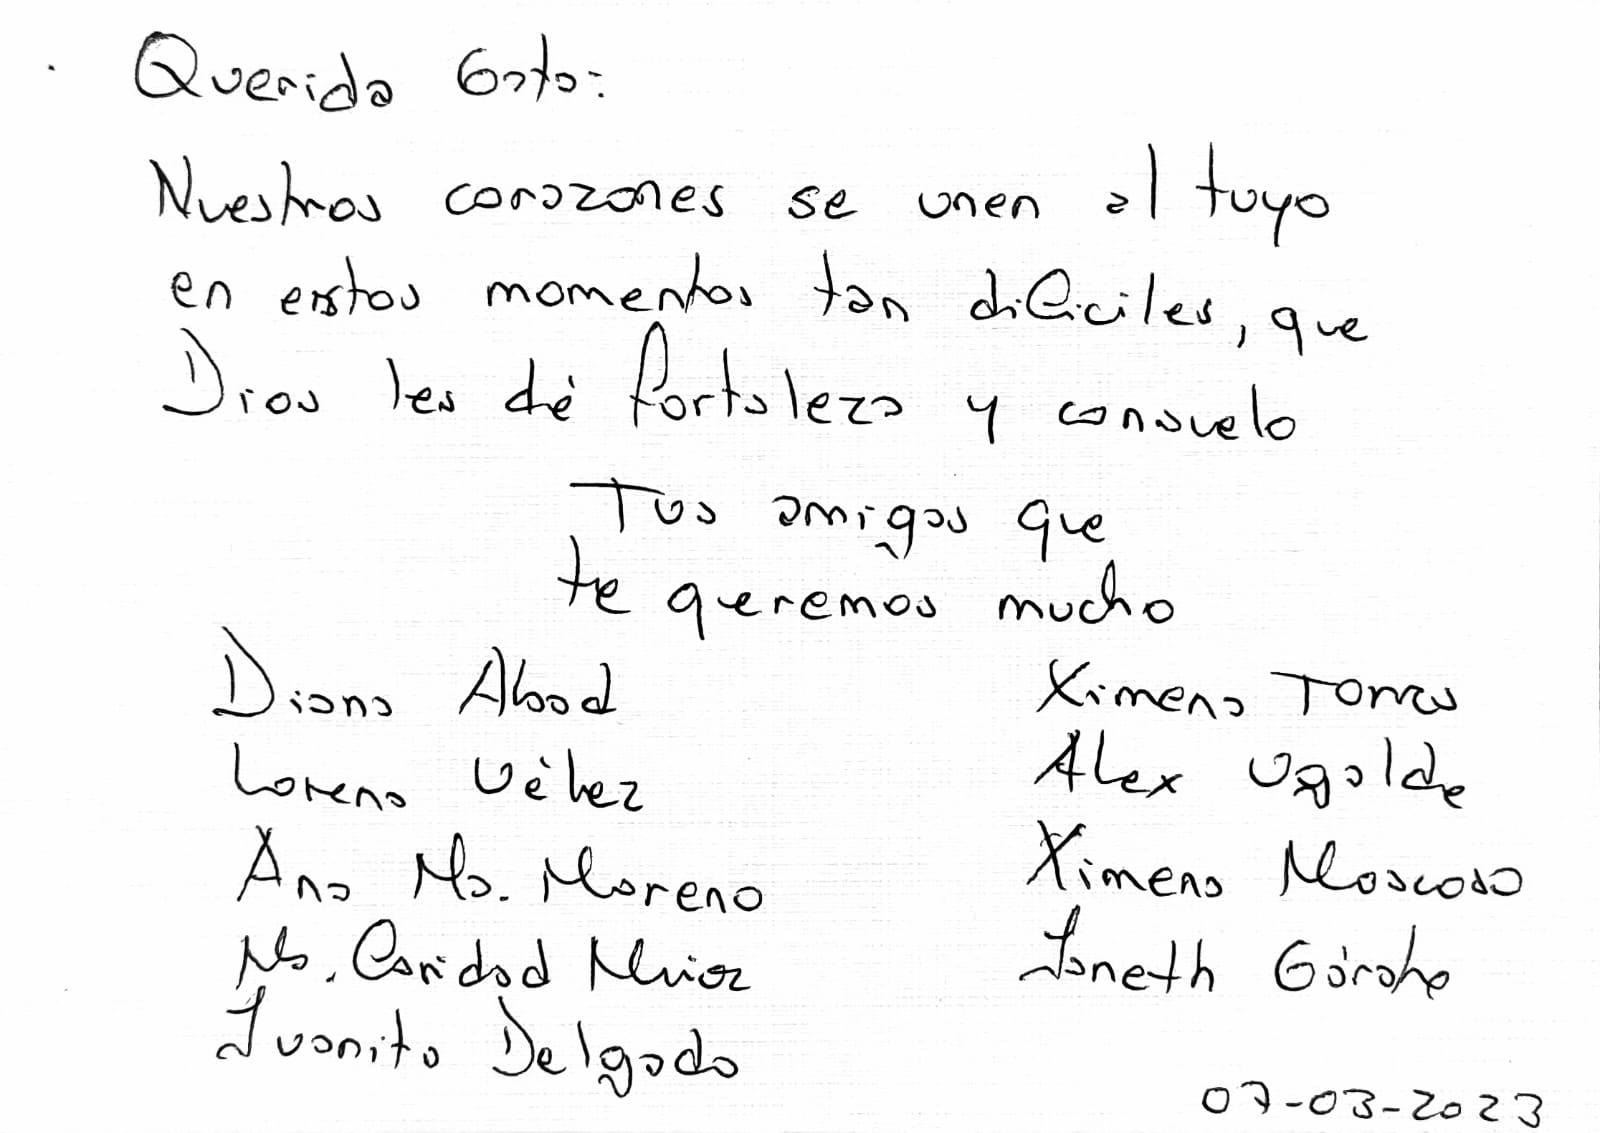 Querida Gata:
Nuestros corazones se unen al tuyo
en estos momentos tan dificiles, que
Dios les dé fortaleza y consuelo
Tus amigos que
te queremos mucho
Diana Abad
Lorena Vélez
Ana Ma. Moreno
Ma. Caridad
Juanito Delgado
Ximena Torres
Alex Ugalde
Ximena Moscoso
Janeth
07-03-2023